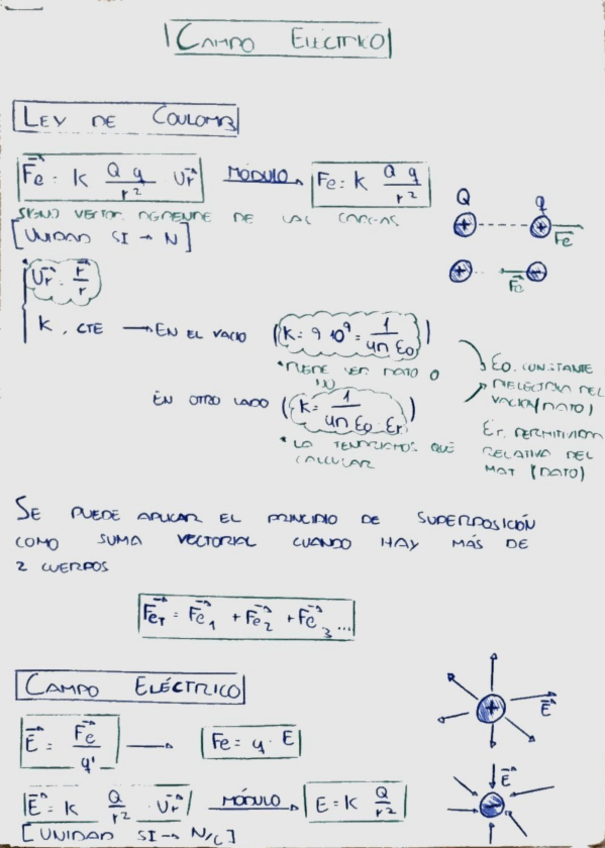 CAMPO ELÉCTRICO
LEY DE COULOMB
F⃗e = K Q q / r² U⃗r MÓDULO → Fe = K Q q / r²
SIGNO VECTOR DEPENDE DE LAS CARGAS
[UNIDAD SI → N]
Q q
+ + F⃗e
+ F⃗e −
U⃗r = r⃗ / r
K, CTE → EN EL VACÍO (K = 9·10⁹ = 1 / 4π Eo)
*PUEDE SER DATO O
EN OTRO LADO (K = 1 / 4π Eo · Er)
* LO TENDRÍAMOS QUE
CALCULAR
Eo. CONSTANTE
DIELÉCTRICA DEL
VACÍO (DATO)
Er. PERMITIVIDAD
RELATIVA DEL
MAT (DATO)
SE PUEDE APLICAR EL PRINCIPIO DE SUPERPOSICIÓN
COMO SUMA VECTORIAL CUANDO HAY MÁS DE
2 CUERPOS
F⃗eT = F⃗e1 + F⃗e2 + F⃗e3 ...
CAMPO ELÉCTRICO
E⃗ = F⃗e / q' → Fe = q · E
+ E⃗
E⃗ = K Q / r² · U⃗r MÓDULO → E = K Q / r²
− E⃗
[UNIDAD SI → N/C]